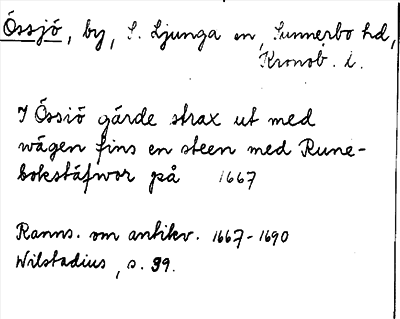 Össjö, by, S. Ljunga en, Sunnerbo hd,
Kronob. l.
I Össiö gärde strax ut med
wägen fins en steen med Rune-
bokstäfwor på 1667
Ranns. om antikv. 1667-1690
Wilstadius, s. 39.